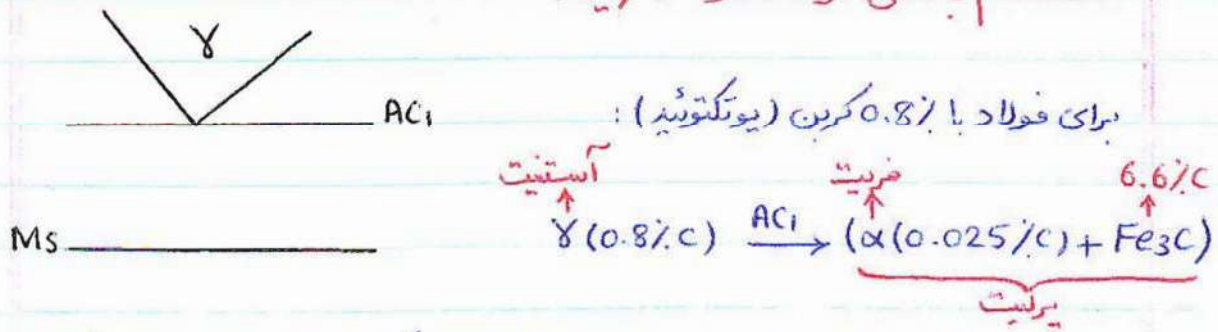 γ
AC₁
برای فولاد با 0.8% کربن (یوتکتوئید) :
آستنیت فریت 6.6%C
Ms γ(0.8%C) →AC₁ (α(0.025%C) + Fe₃C)
پرلیت